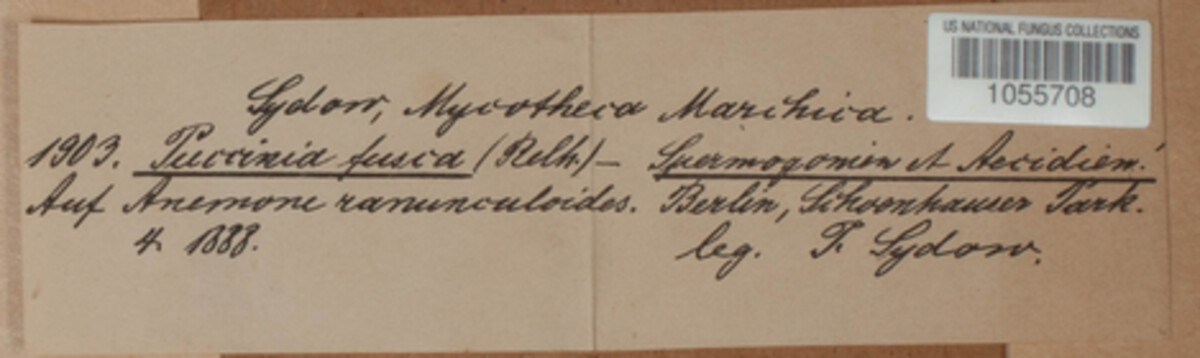 US NATIONAL FUNGUS COLLECTIONS
1055708
Sydow, Mycotheca Marchica.
1903. Puccinia fusca (Relh.) – Spermogonien et Aecidien!
Auf Anemone ranunculoides. Berlin, Schoenhauser Park.
4 1888. leg. P. Sydow.